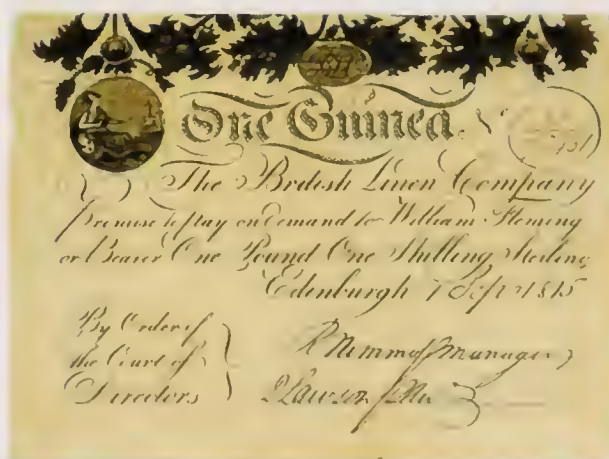 One Guinea.
The British Linen Company
promise to pay on demand to William Fleming
or Bearer One Pound One Shilling Sterling
Edinburgh 7 Sept 1815
By Order of
the Court of
Directors
Manager